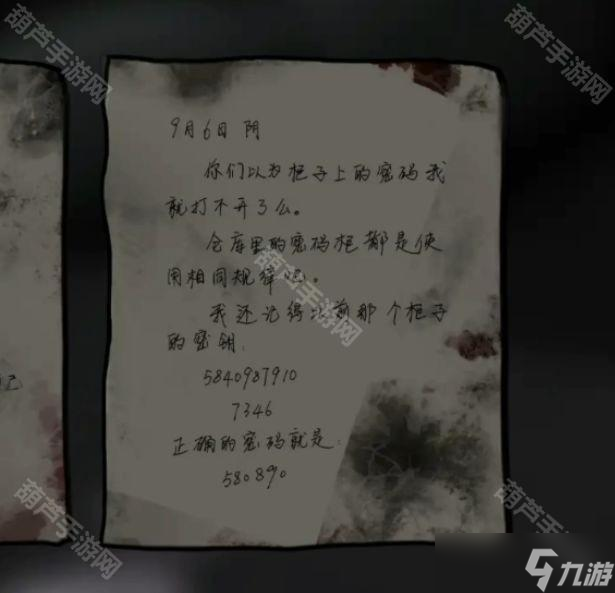 9月6日 阴
你们以为柜子上的密码我
就打不开了么。
仓库里的密码柜都是使
用相同规律吧。
我还记得以前那个柜子
的密钥.
5840987910
7346
正确的密码就是:
580890
己
葫芦手游网
葫芦手游网
葫芦手游网
葫芦手游网
葫芦手游网
九游